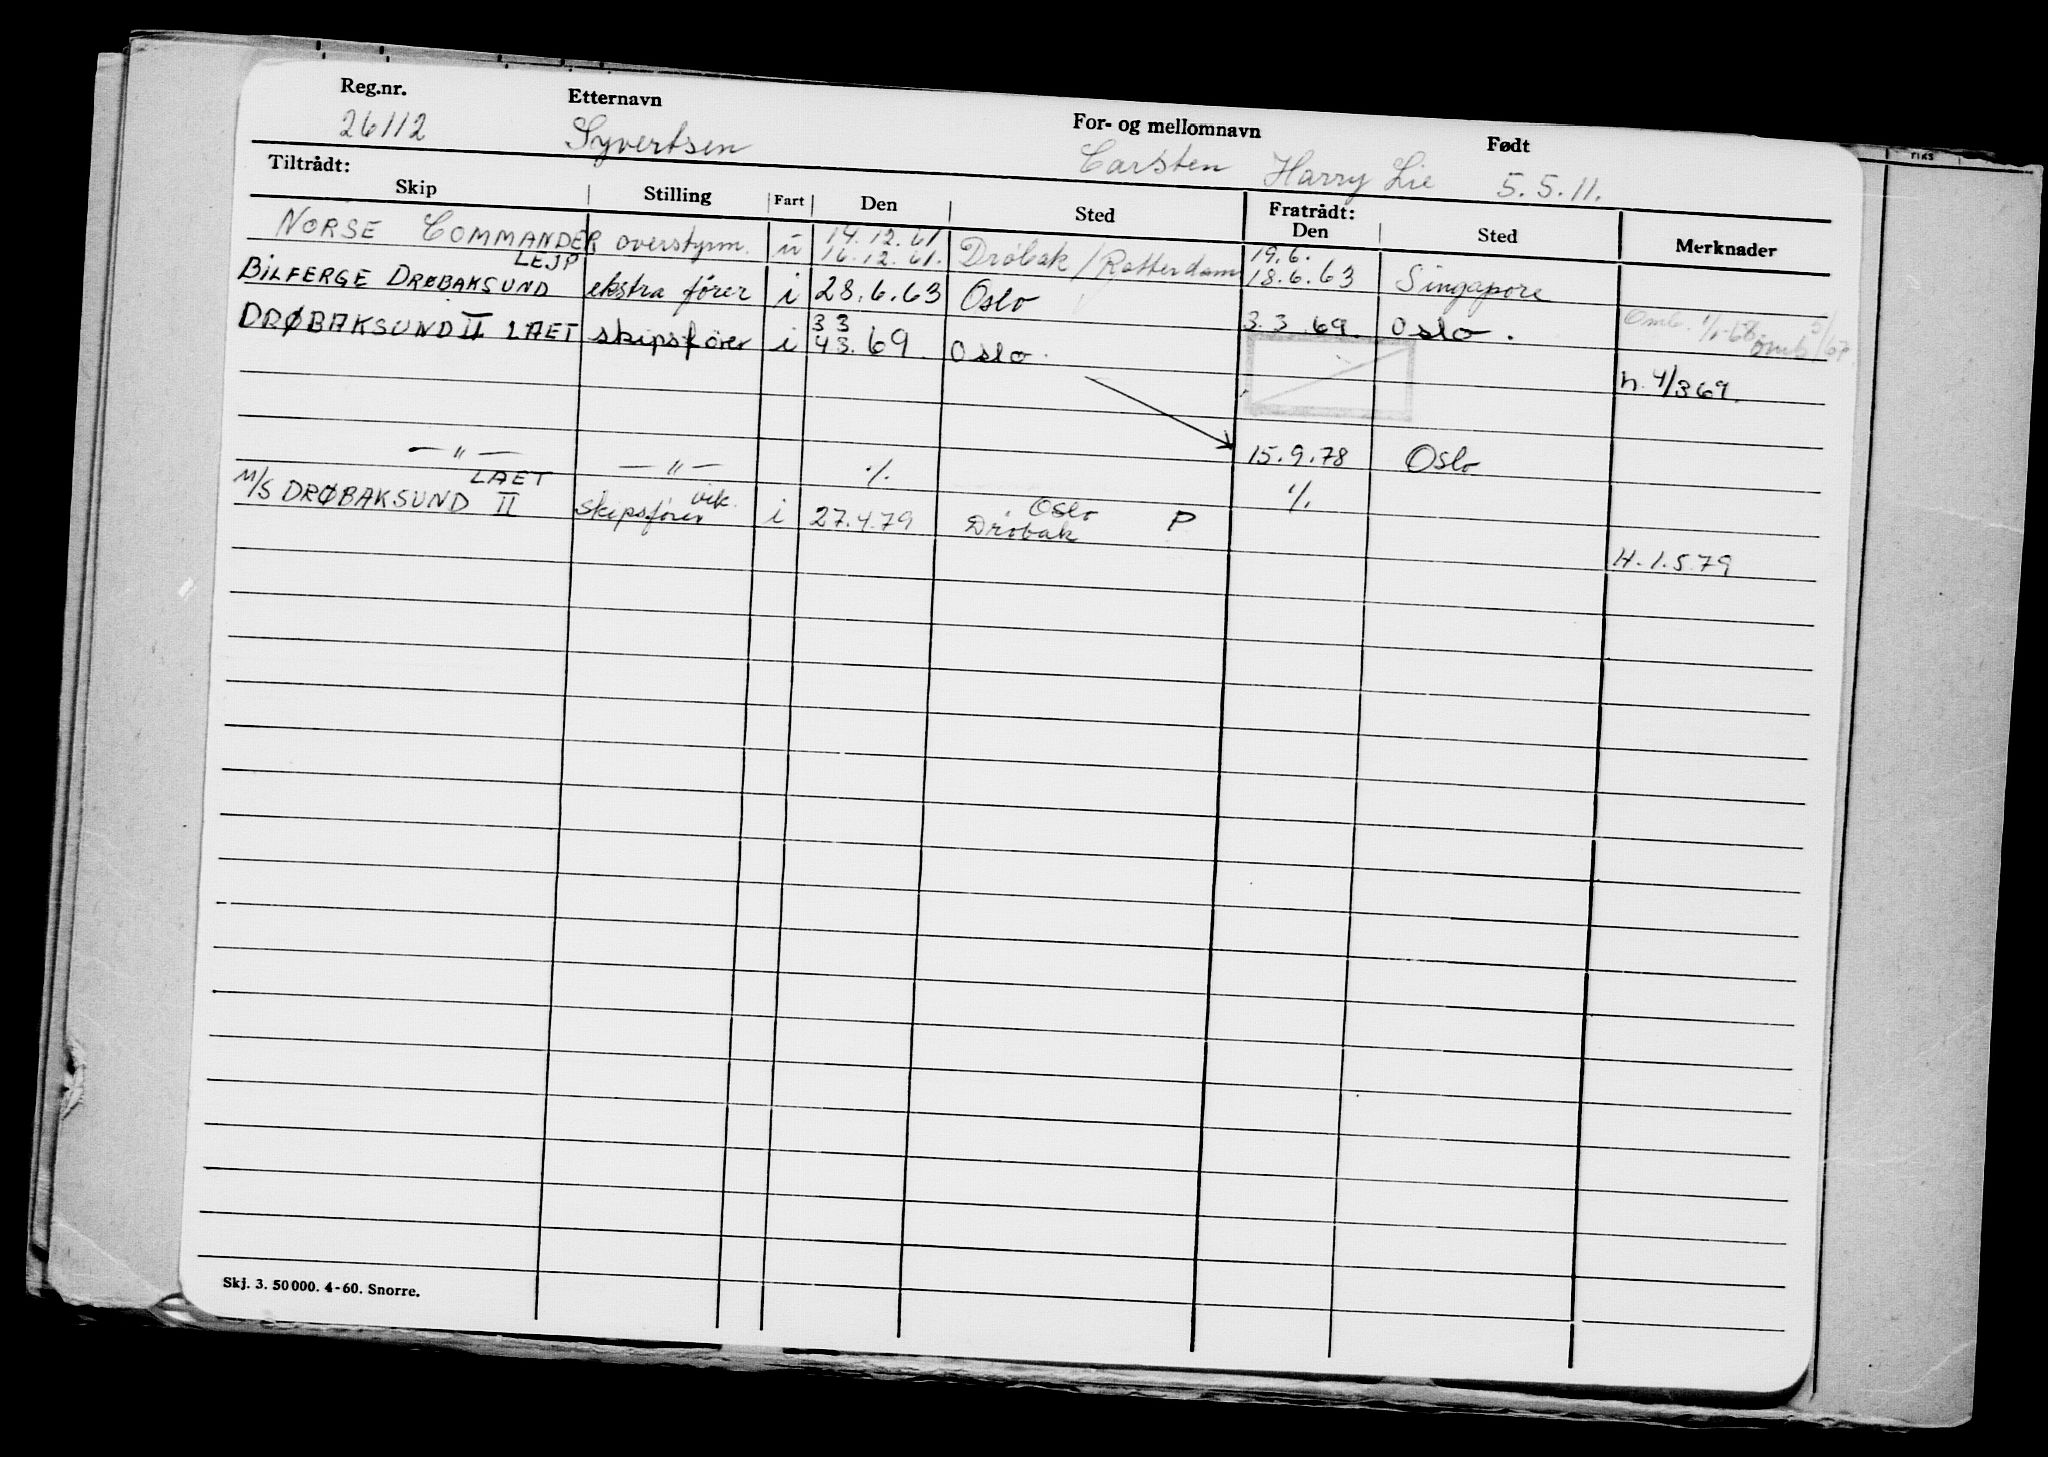 Reg.nr. Etternavn For- og mellomnavn Født
26112 Syvertsen Carsten Harry Lie 5.5.11.
Tiltrådt: Fratrådt:
Skip Stilling Fart Den Sted Den Sted Merknader
14.12.61 19.6.
NORSE COMMANDER overstyrm. u 16.12.61. Drøbak/Rotterdam 18.6.63 Singapore
LEJP
BILFERGE DRØBAKSUND ekstra fører i 28.6.63 Oslo 3.3.69. Oslo. Omb. 1/1-68 omb
3 3
DRØBAKSUND II LAET skipsfører i 4 3.69. Oslo.
h. 4/3 69.
— " — — " — ·/. 15.9.78 Oslo
LAET vik. Oslo ·/.
M/S DRØBAKSUND II skipsfører i 27.4.79 Drøbak P
H. 1.5.79
Skj. 3. 50000. 4-60. Snorre.